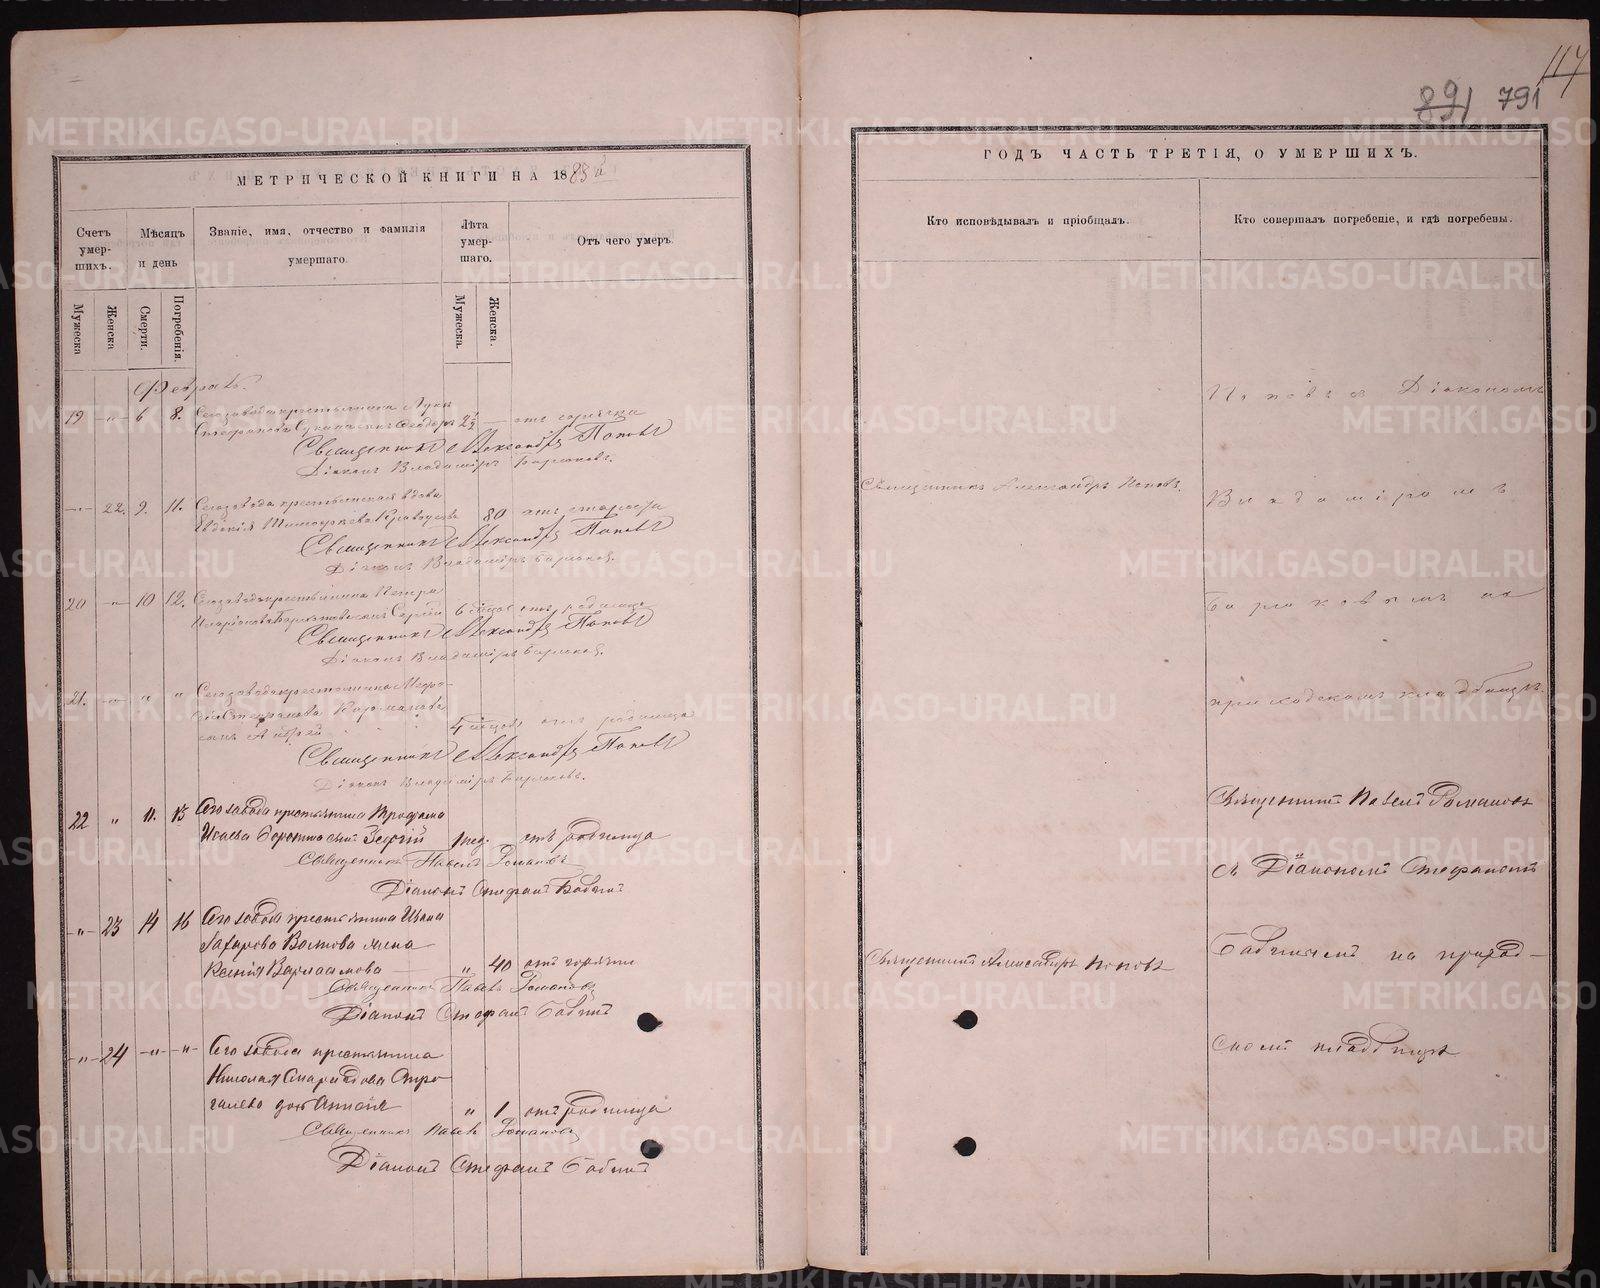 114
891 791
МЕТРИЧЕСКОЙ КНИГИ НА 1883й
ГОДЪ ЧАСТЬ ТРЕТІЯ, О УМЕРШИХЪ.
Счетъ умер-
шихъ.
Мѣсяцъ
и день
Званіе, имя, отчество и фамилія
умершаго.
Лѣта
умер-
шаго.
Отъ чего умеръ.
Кто исповѣдывалъ и пріобщалъ.
Кто совершалъ погребеніе, и гдѣ погребены.
Мужеска
Женска
Смерти.
Погребенія.
Мужеска.
Женска.
Февраль.
19 -"- 6 8. Сегозавода крестьянина Луки
Стефанова сынъ Ѳеодоръ 2½ — отъ горячки
Священникъ Александръ Поповъ
Діаконъ Владиміръ Бирюковъ.
-"- 22. 9. 11. Сегозавода крестьянская вдова
Евдокія Тимоѳеева 80 отъ старости
Священникъ Александръ Поповъ
Діаконъ Владиміръ Бирюковъ.
20 -"- 10 12. Сегозавода крестьянина Петра
Иларіонова сынъ Сергій 6 мѣсяц. отъ родимца
Священникъ Александръ Поповъ
Діаконъ Владиміръ Бирюковъ.
21. -"- " " Сегозавода крестьянина
Стефанова
сынъ Андрей 4 мѣсяц. отъ родимца
Священникъ Александръ Поповъ
Діаконъ Владиміръ Бирюковъ.
22 " 11. 13 Сего завода крестьянина Трофима
Исаева сынъ Георгій 1 нед. отъ родимца
Священникъ Павелъ Романовъ
Діаконъ Стефанъ Бабинъ
-"- 23 14 16 Сего завода крестьянина Ивана
Захарова жена
Ксенія Варлаамова " 40 отъ горячки
Священникъ Павелъ Романовъ
Діаконъ Стефанъ Бабинъ
-"- 24 -"- -"- Сего завода крестьянина
Николая Спиридонова Стро-
галева дочь Анисія " 1 отъ родимца
Священникъ Павелъ Романовъ
Діаконъ Стефанъ Бабинъ
Священникъ Александръ Поповъ.
Священникъ Александръ Поповъ
Поповъ съ Діакономъ
Владиміромъ
Бирюковымъ на
приходскомъ кладбищѣ.
Священникъ Павелъ Романовъ
съ Діакономъ Стефаномъ
Бабинымъ на приход-
скомъ кладбищѣ
METRIKI.GASO-URAL.RU